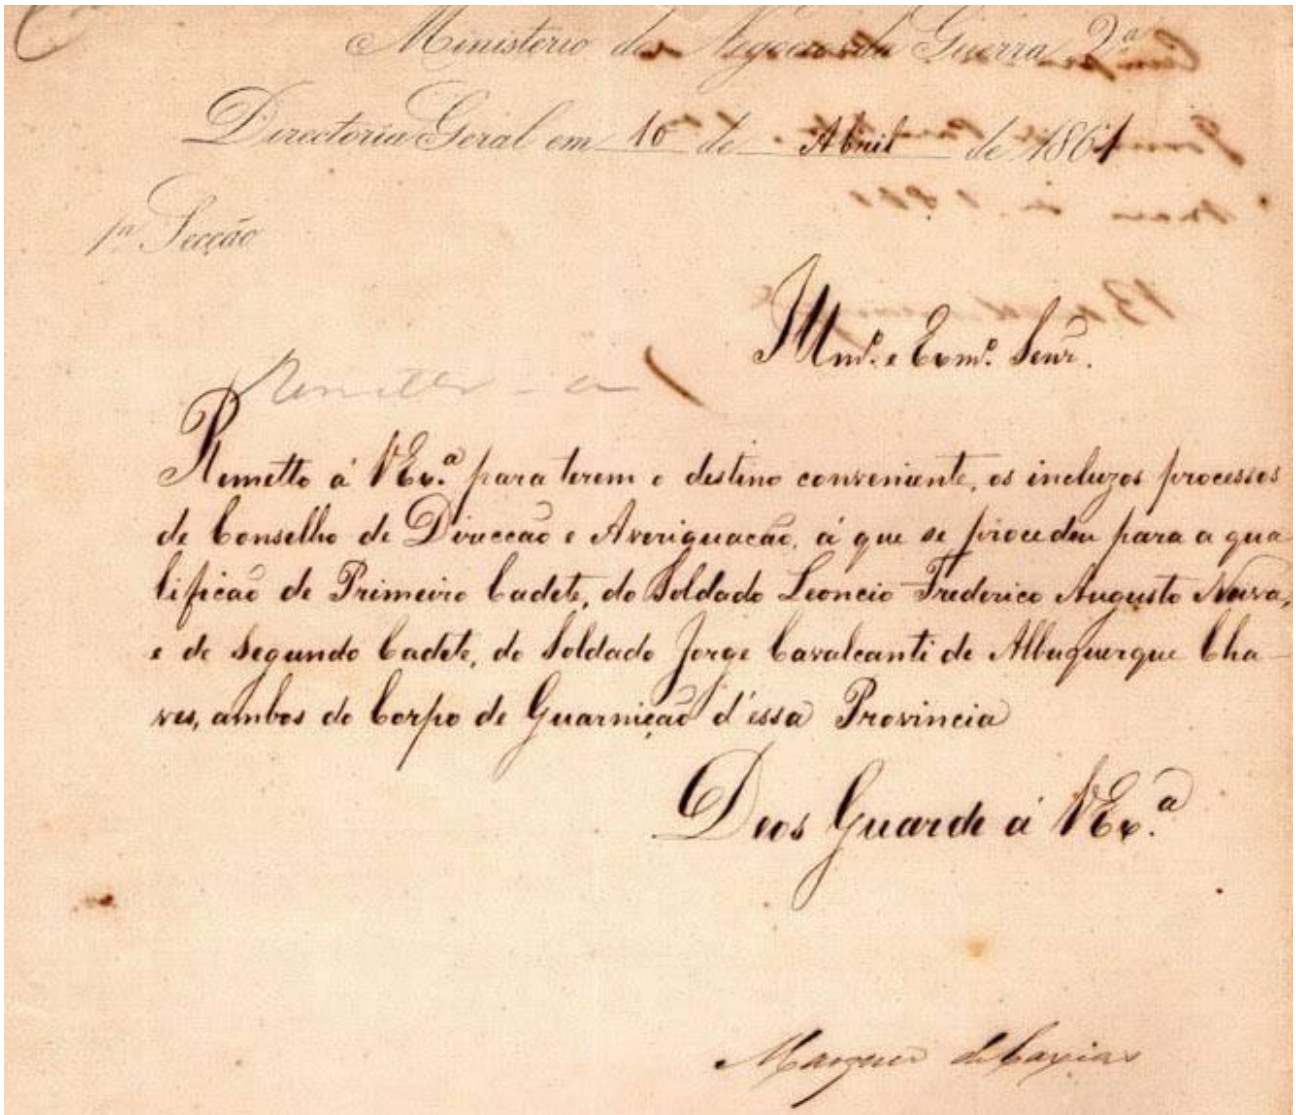 Ministerio dos Negocios da Guerra 2ª
Directoria Geral em 10 de Abril de 1861
1ª Secção
Illmº. e Exmº. Senr.
Remetta-se
Remetto á VExª. para terem o destino conveniente, os incluzos processos
de Conselho de Direccão e Averiguacão, á que se procedeu para a qua
lificaõ de Primeiro Cadete, do Soldado Leoncio Frederico Augusto Neiva,
e de Segundo Cadete, do Soldado Jorge Cavalcanti de Albuquerque Cha-
ves, ambos do Corpo de Guarnição d'essa Provincia
Deos Guarde á VExª.
Marquez de Caxias